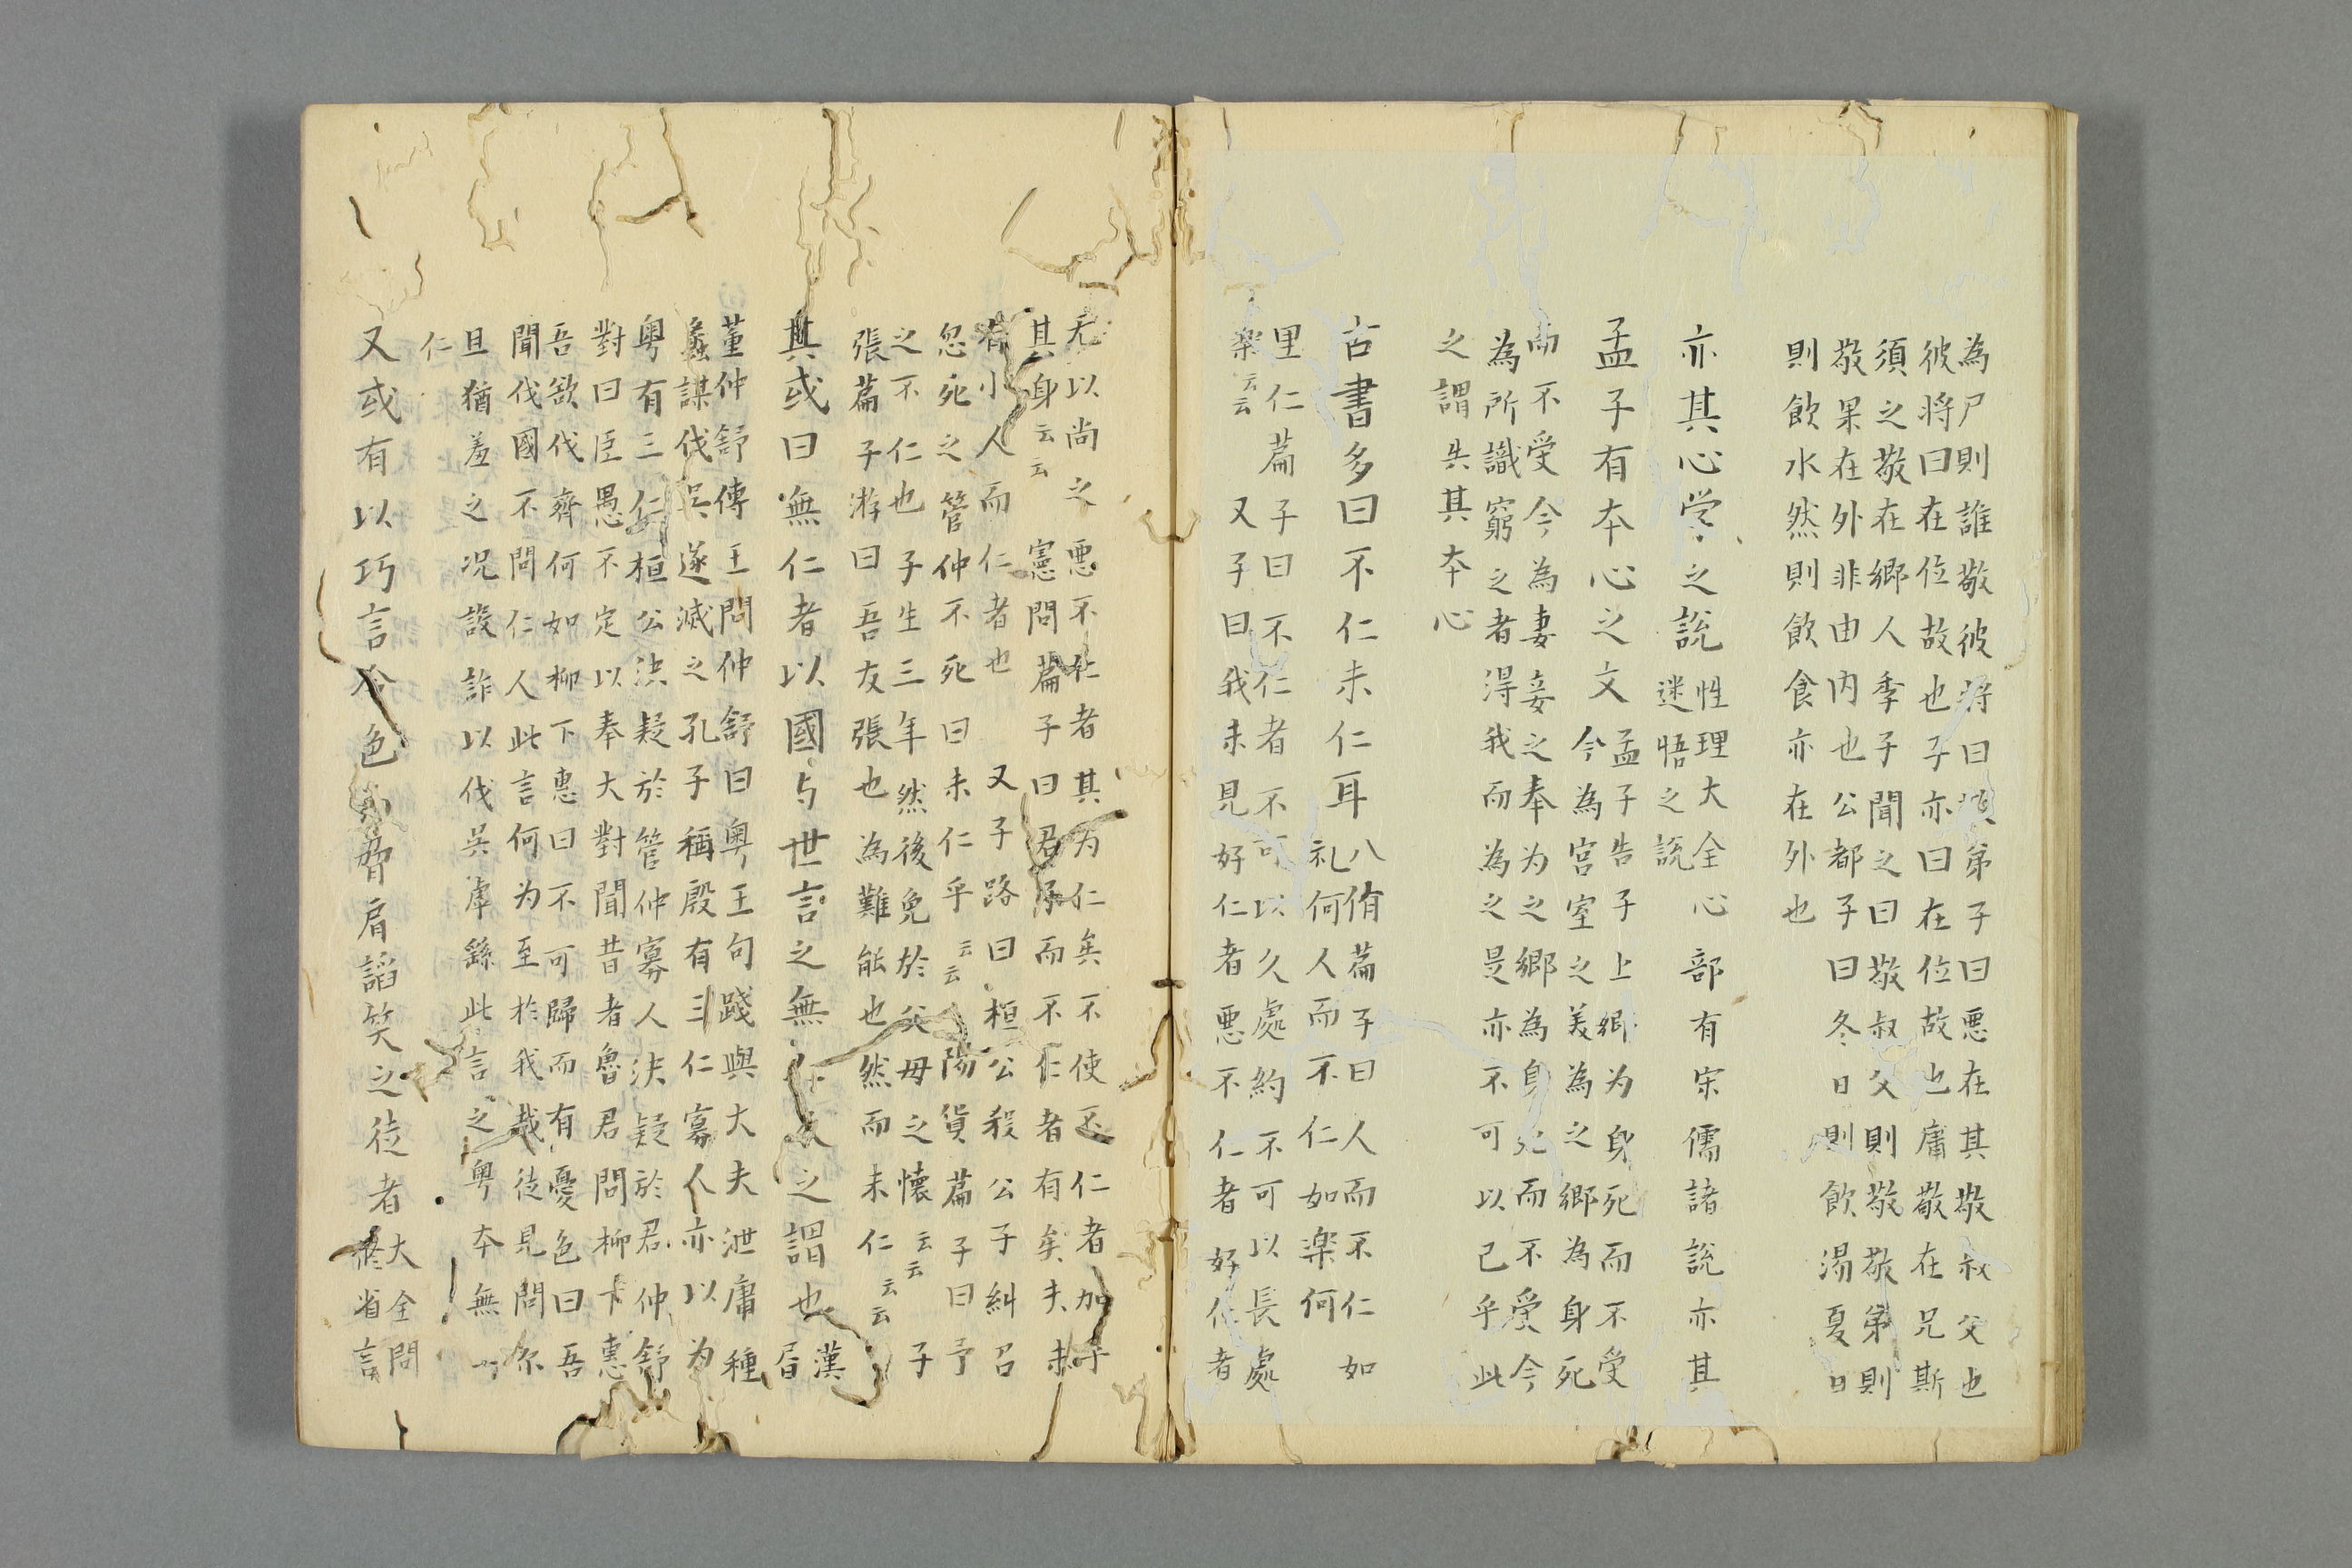 為尸則誰敬彼将曰須弟子曰悪在其敬叔父也
彼将曰在位故也子亦曰在位故也庸敬在兄斯
須之敬在郷人季子聞之曰敬叔父則敬敬弟則
敬果在外非由内也公都子曰冬日則飲湯夏日
則飲水然則飲食亦在外也
亦其心学之説
性理大全心部有宋儒諸説亦其
迷悟之説
孟子有夲心之文
孟子告子上郷为身死而不受
今為宮室之美為之郷為身死
而不受今為妻妾之奉为之郷為身死而不受今
為所識窮之者淂我而為之是亦不可以已乎此
之謂失其夲心
古書多曰不仁未仁耳
八佾萹子曰人而不仁如
礼何人而不仁如楽何
里仁萹子曰不仁者不可以久處約不可以長處
楽云云又子曰我未見好仁者悪不仁者好仁者
无以尚之悪不仁者其为仁矣不使不仁者加乎
其身云云憲問萹子曰君子而不仁者有矣夫未
有小人而仁者也又子路曰桓公殺公子糾召
忽死之管仲不死曰未仁乎云云陽貨萹子曰予
之不仁也子生三年然後免於父母之懐云云子
張萹子游曰吾友張也為難能也然而未仁云云
其或曰無仁者以國与世言之無仁之謂也
漢
昏
董仲舒傳王問仲舒曰粤王句踐與大夫泄庸種
蠡謀伐呉遂滅之孔子稱殷有三仁寡人亦以为
粤有三仁桓公决疑於管仲寡人决疑於君仲舒
對曰臣愚不定以奉大對聞昔者魯君問柳下惠
吾欲伐齊何如柳下惠曰不可歸而有憂色曰吾
聞伐國不問仁人此言何为至於我哉徒見問尓
且猶羞之况設詐以伐呉虖繇此言之粤夲無一
仁
又或有以巧言令色脅肩謟笑之徒者
大全問
省言